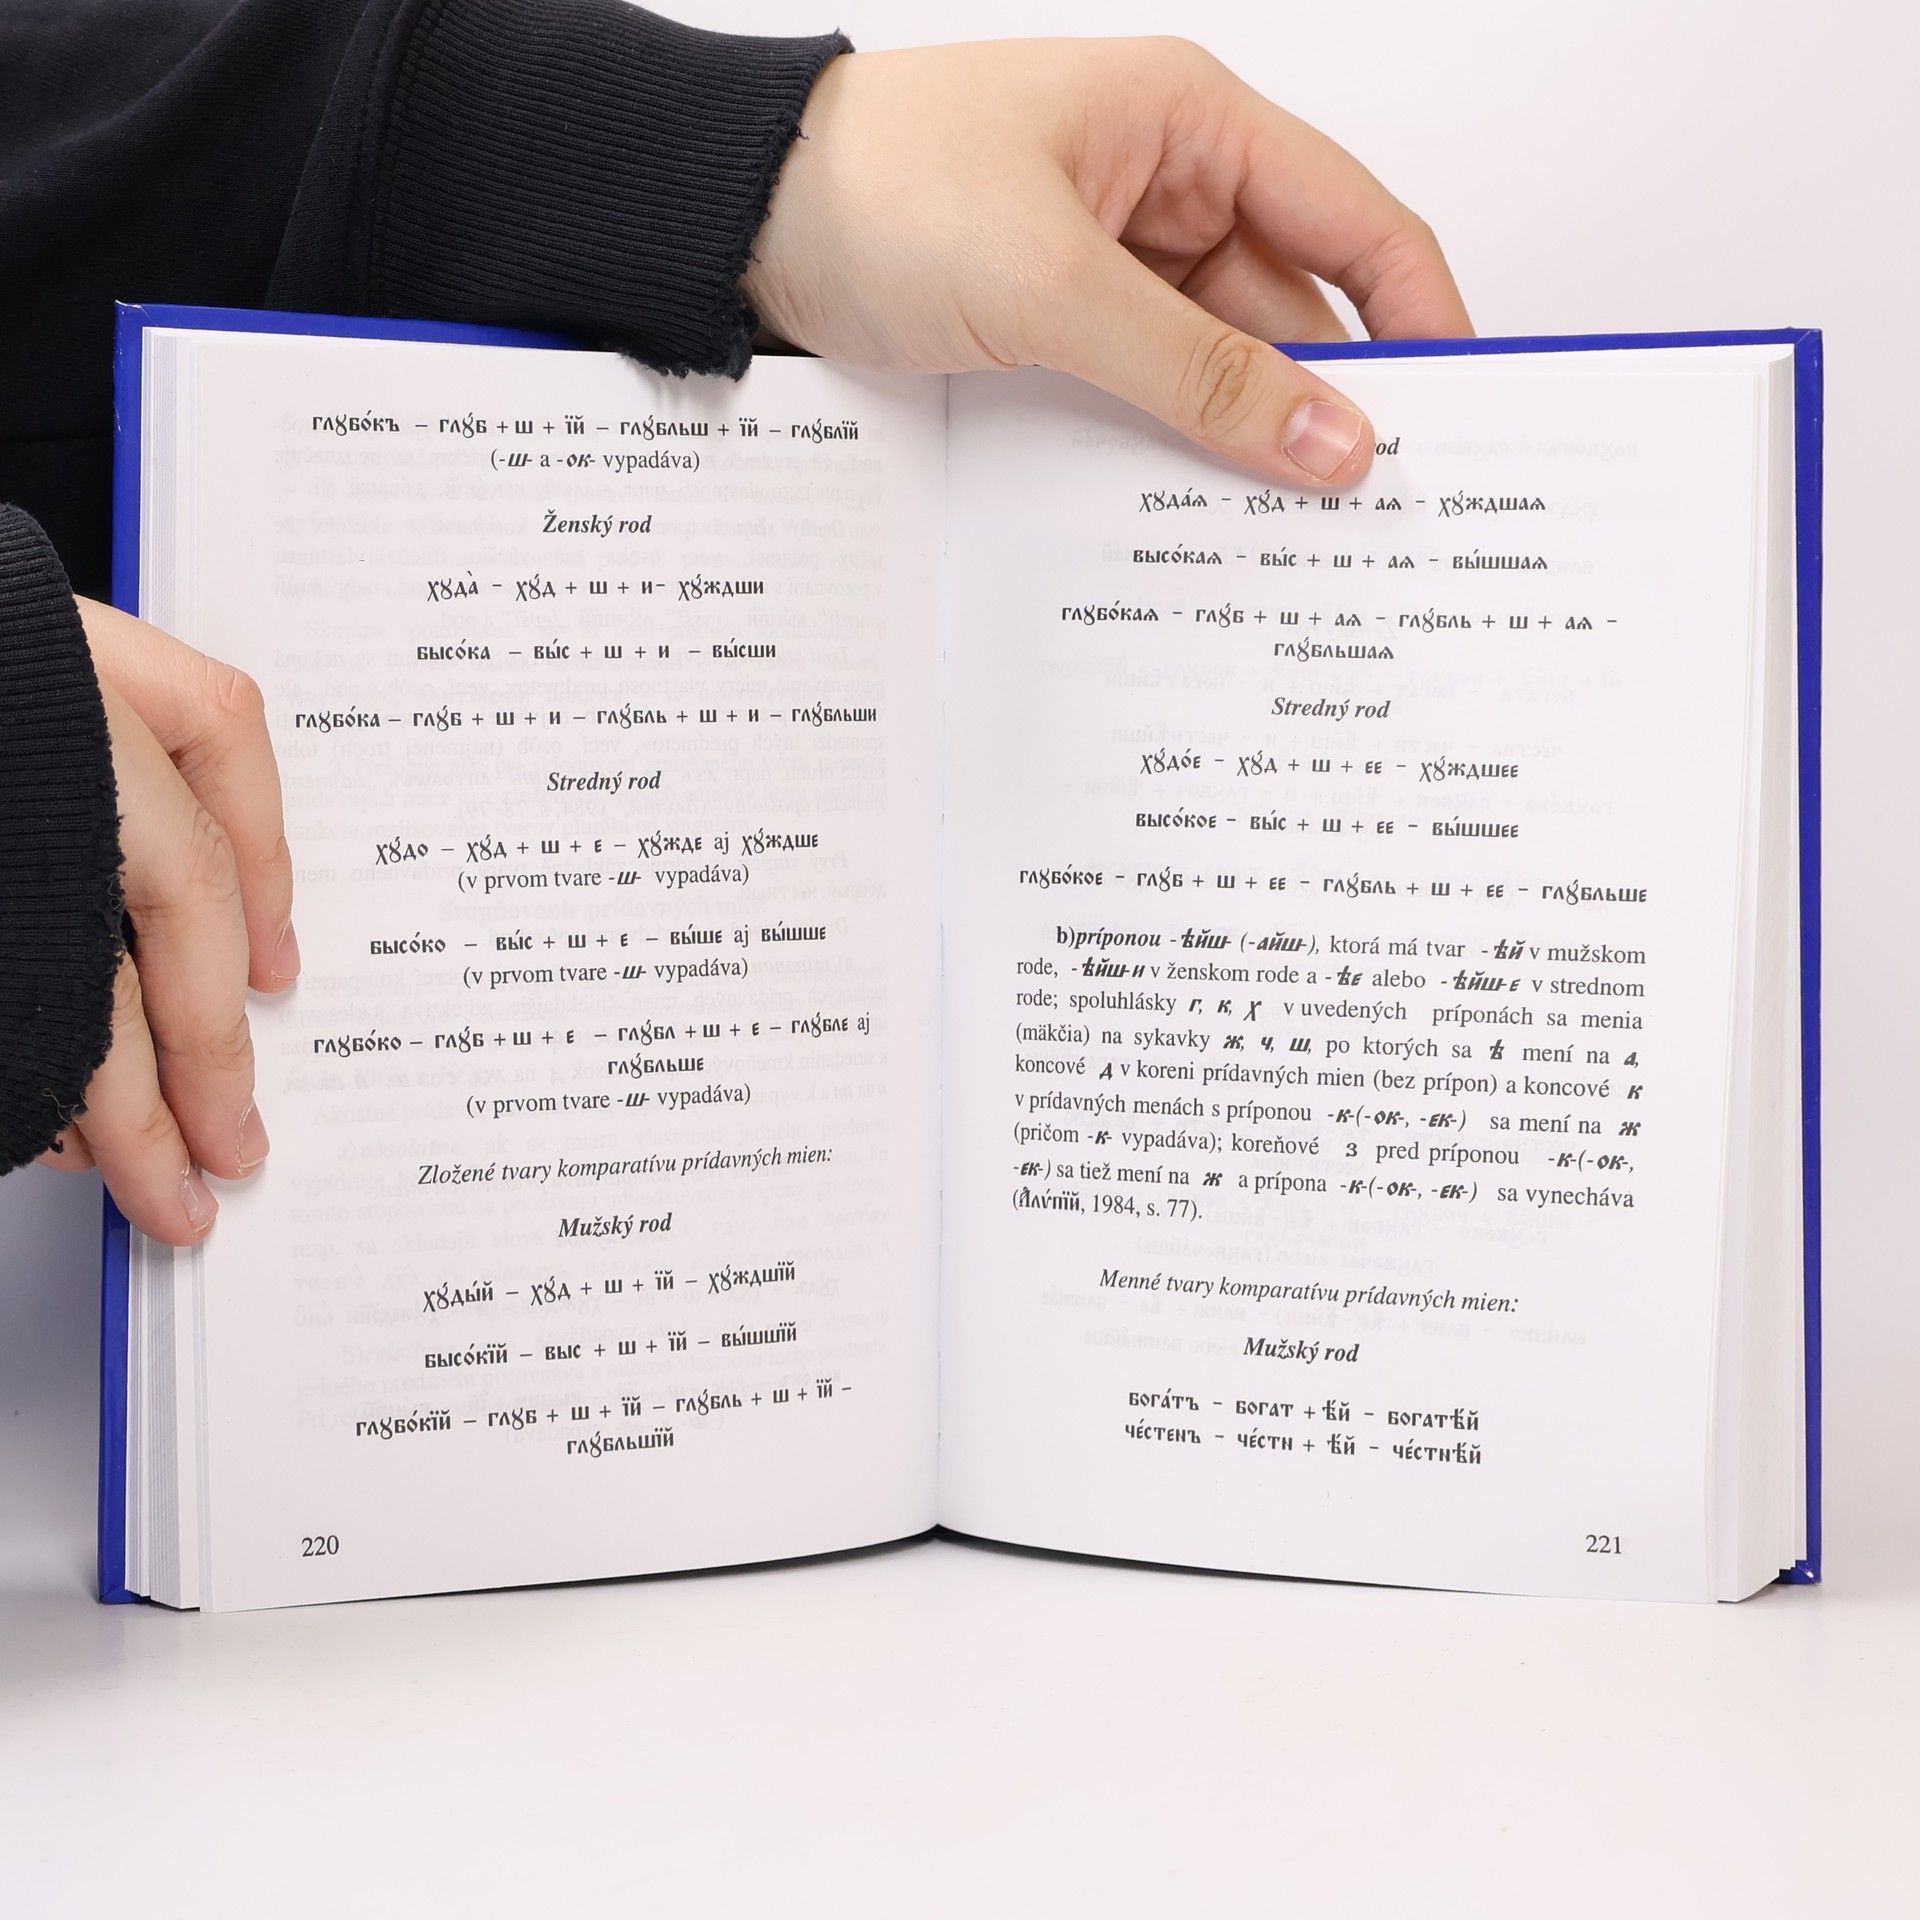 глꙋбо́къ – глꙋ́б + ш + їй – глꙋ́бльш + їй – глꙋ́блїй
(-ш- a -ок- vypadáva)
Ženský rod
хꙋда̀ – хꙋ́д + ш + и– хꙋ́ждши
бысо́ка – вы́с + ш + и – вы́сши
глꙋбо́ка – глꙋ́б + ш + и – глꙋ́бль + ш + и – глꙋ́бльши
Stredný rod
хꙋ́до – хꙋ́д + ш + е – хꙋ́жде aj хꙋ́ждше
(v prvom tvare -ш- vypadáva)
бысо́ко – вы́с + ш + е – вы́ше aj вы́шше
(v prvom tvare -ш- vypadáva)
глꙋбо́ко – глꙋ́б + ш + е – глꙋ́бл + ш + е – глꙋ́бле aj
глꙋ́бльше
(v prvom tvare -ш- vypadáva)
Zložené tvary komparatívu prídavných mien:
Mužský rod
хꙋ́ды́й – хꙋ́д + ш + їй – хꙋ́ждшїй
бысо́кїй – выс + ш + їй – вы́шшїй
глꙋбо́кїй – глꙋб + ш + їй – глꙋ́бль + ш + їй –
глꙋ́бльшїй
220
od
хꙋда́ѧ – хꙋ́д + ш + аѧ – хꙋ́ждшаѧ
высо́каѧ – вы́с + ш + аѧ – вы́шшаѧ
глꙋбо́каѧ – глꙋ́б + ш + аѧ – глꙋ́бль + ш + аѧ –
глꙋ́бльшаѧ
Stredný rod
хꙋдо́е – хꙋ́д + ш + ее – хꙋ́ждшее
высо́кое – вы́с + ш + ее – вы́шшее
глꙋбо́кое – глꙋ́б + ш + ее – глꙋ́бль + ш + ее – глꙋ́бльше
b)príponou -ѣйш- (-айш-), ktorá má tvar -ѣй v mužskom
rode, -ѣйш-и v ženskom rode a -ѣе alebo -ѣйш-е v strednom
rode; spoluhlásky г, к, х v uvedených príponách sa menia
(mäkčia) na sykavky ж, ч, ш, po ktorých sa ѣ mení na а,
koncové д v koreni prídavných mien (bez prípon) a koncové к
v prídavných menách s príponou -к-(-ок-, -ек-) sa mení na ж
(pričom -к- vypadáva); koreňové з pred príponou -к-(-ок-,
-ек-) sa tiež mení na ж a prípona -к-(-ок-, -ек-) sa vynecháva
(А҆лѵ́пїй, 1984, s. 77).
Menné tvary komparatívu prídavných mien:
Mužský rod
бога́тъ – богат + ѣ́й – богатѣ́й
че́стенъ – че́стн + ѣ́й – че́стнѣ́й
221